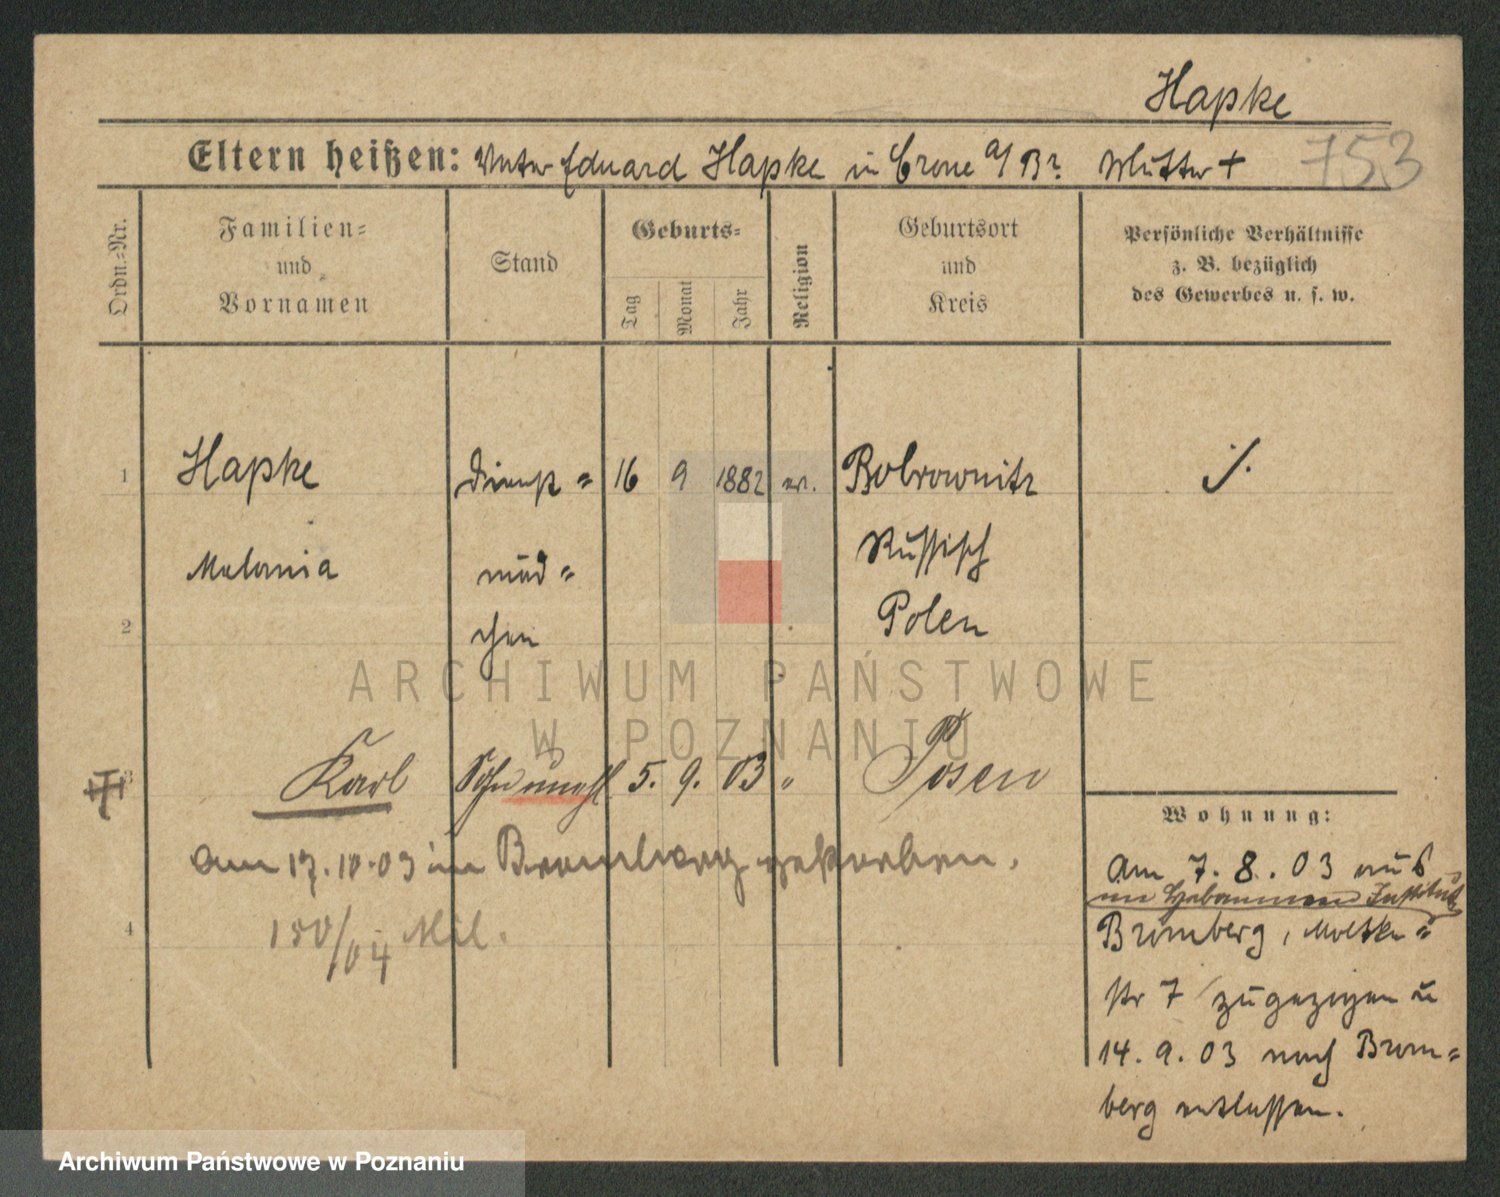 Hapke
753
Eltern heißen: Vater Eduard Hapke in Crone a/Br. Mutter +
Ordn.-Nr.
Familien-
und
Vornamen
Stand
Geburts-
Tag
Monat
Jahr
Religion
Geburtsort
und
Kreis
Persönliche Verhältnisse
z. B. bezüglich
des Gewerbes u. s. w.
1 Hapke Dienst= 16 9 1882 ev. Bobrownitz ./.
Melania mäd= Russisch
2 chen Polen
3 Karl Sohn unehl 5. 9. 03 " Posen
Wohnung:
am 17.10.03 in Bromberg gestorben.
4 150/04 Mil.
Am 7. 8. 03 aus
im Hebammen Institut
Bromberg, Moltke=
str 7 zugezogen u
14. 9. 03 nach Brom=
berg entlassen.
ARCHIWUM PAŃSTWOWE
W POZNANIU
Archiwum Państwowe w Poznaniu